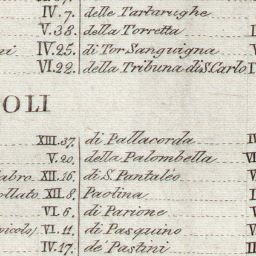 IV. 7. delle Tartarughe
V. 38. della Torretta
IV. 25. di Tor Sanguigna
VI. 22. della Tribuna di S. Carlo
OLI
XIII. 37. di Pallacorda
V. 20. della Palombella VI
XII. 16. di S. Pantaléo
ollato XII. 8. Paolina
VI. 6. di Parione
VI. 11. di Pasquino
IV. 17. de' Pastini